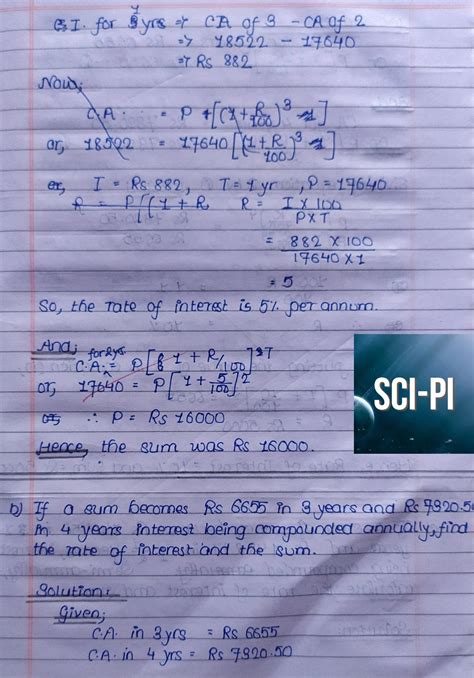 C.I. for 1 yrs => CA of 3 - CA of 2
=> 18522 - 17640
=> Rs 882
Now;
C.A. = P [(1 + R/100)^3 - 1]
or, 18522 = 17640 [(1+R/100)^3 - 1]
or, I = Rs 882, T = 1 yr, P = 17640
R = P[(1 + R   R = I × 100 / P×T
= 882 × 100 / 17640 × 1
= 5
So, the rate of interest is 5% per annum.
And;
for 2yrs
C.A. = P [1 + R/100]^T
or, 17640 = P [1 + 5/100]^2
or, ∴ P = Rs 16000
Hence, the sum was Rs 16000.
SCI-PI
b) If a sum becomes Rs 6655 in 3 years and Rs 7320.50
in 4 years interest being compounded annually, find
the rate of interest and the sum.
Solution:
Given;
C.A. in 3 yrs = Rs 6655
C.A. in 4 yrs = Rs 7320.50